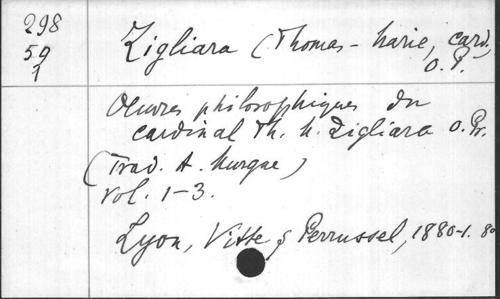 298
59
1
Zigliara (Thomas-Marie, card,
O. P.
Oeuvres philosophiques du
cardinal Th. M. Zigliara O. Pr.
(Trad. A. Murgue)
Vol. 1-3.
Lyon, Vitte & Perrussel, 1880-1. 8o